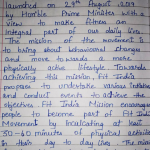 launched on 29th August 2019
by Hon'ble Prime Minister with a
view to make fitness an
integral part of our daily lives.
The mission of the movement is
to bring about behavioural changes
and move towards a more
physically active lifestyle. Towards
achieving this mission, Fit India
propose to undertake various initiatives
and conduct events to achieve the
objectives. Fit India Mission encourages
people to become part of Fit India
Movement by inculcating at least
30-60 minutes of physical activities
in their day to day lives. The